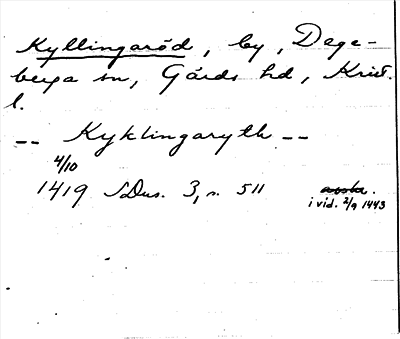 Kyllingaröd, by, Dege-
berga sn, Gärds hd, Krist.
l.
-- Kyklingaryth --
4/10
1419 SDns. 3, s. 511
avskr.
i vid. 2/9 1443